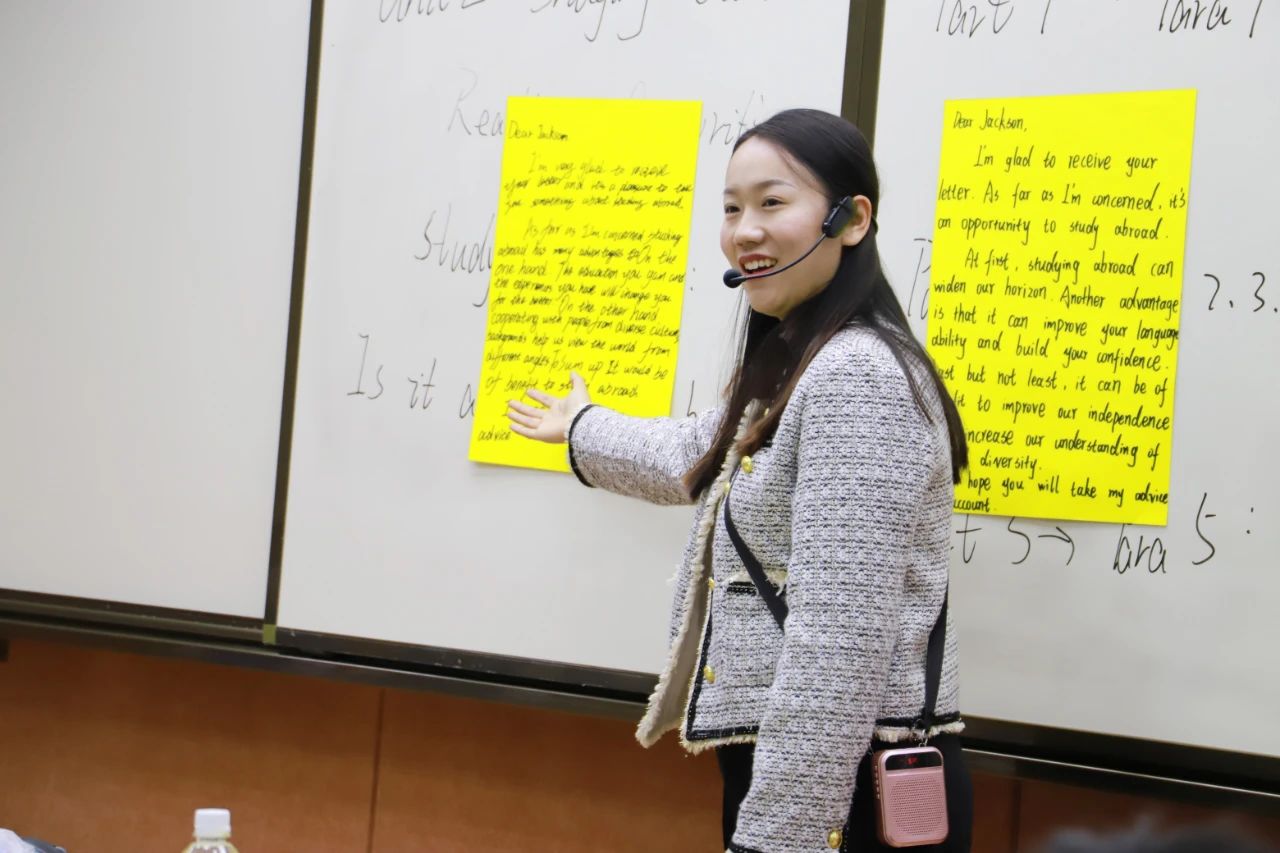 Dear Jackson,
I'm very glad to receive
your letter and it's a pleasure to
you something about studying abroad.
As far as I'm concerned studying
abroad has many advantages to On the
one hand. The education you gain and
the experiences you have will change you
for the better On the other hand
cooperating with people from diverse cultural
backgrounds help us view the world from
different angles To sum up It would be
of benefit to abroad
advice
Study
Is it a
Part 1 Para 1
Dear Jackson,
I'm glad to receive your
letter. As far as I'm concerned, it's
an opportunity to study abroad.
At first, studying abroad can
widen our horizon. Another advantage
is that it can improve your language
ability and build your confidence.
ast but not least, it can be of
fit to improve our independence
increase our understanding of
diversity.
hope you will take my advice
account.
2.3.
t 5→ Para 5: